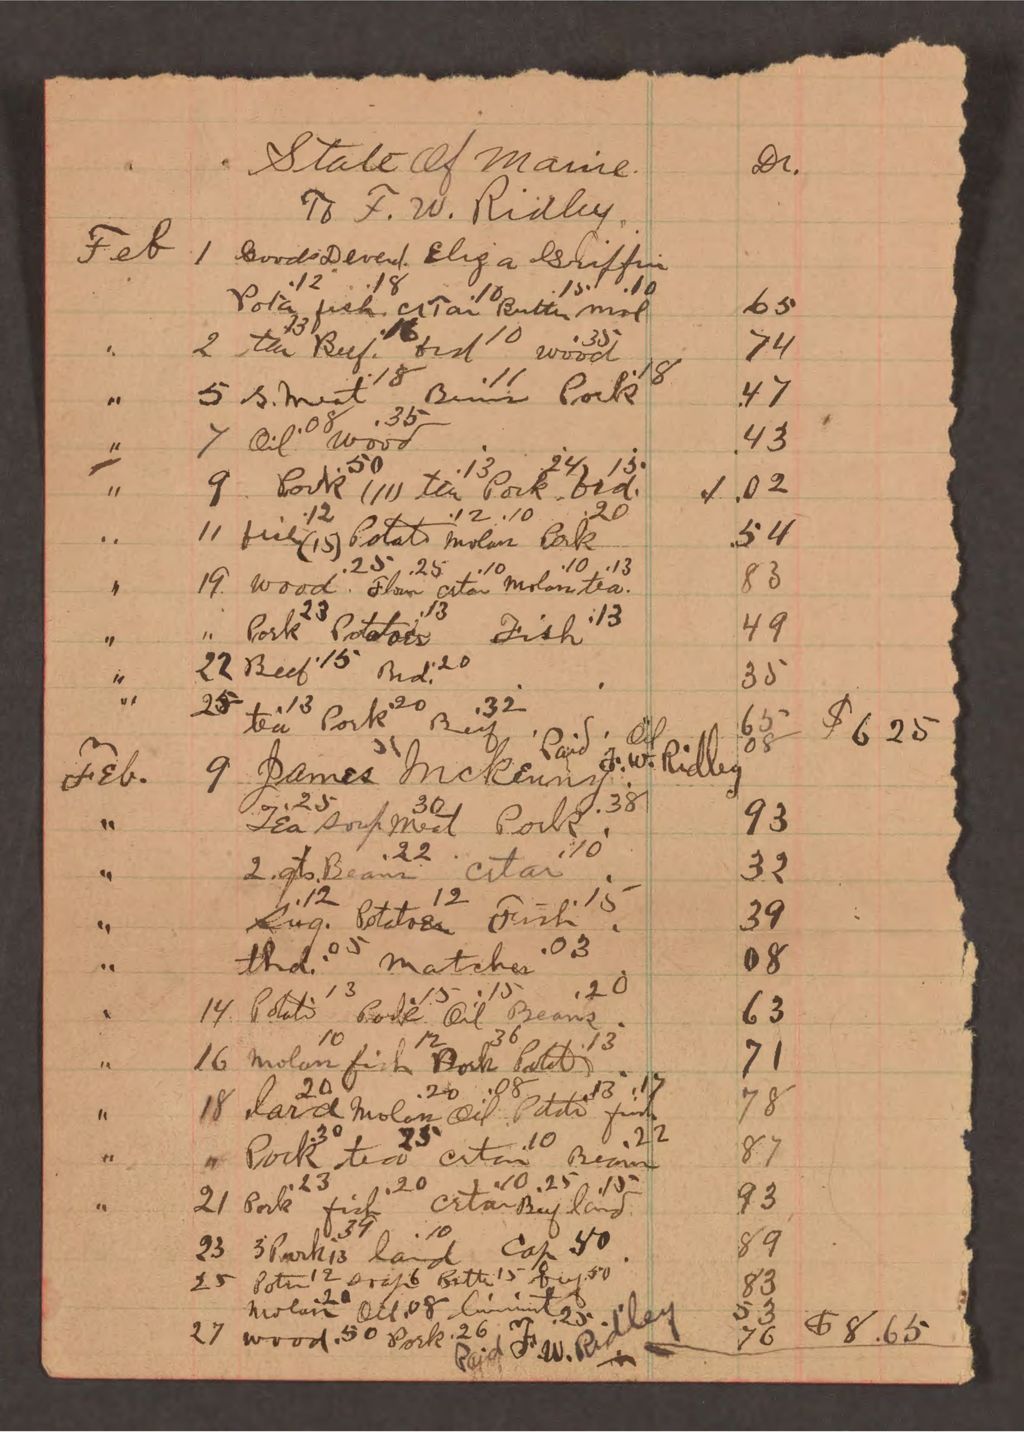 State Of Maine. Dr.
To F. W. Ridley.
Feb 1 Goods Deverd. Eliza Griffin
.12 .18 .10 .15 .10
Pota fish. crTar Butter mol 65
13 16 10 .35
" 2 tea Beef. brd wood 74
.18 .11 .18
" 5 S. Meat Beans Pork .47
.08 .35
" 7 Oil wood .43
.50 .13 24 .15
" 9 Pork (11) tea Pork brd. 1.02
.12 .12 .10 .20
" 11 fish (15) Potats molass Pork .54
.25 .25 .10 .10 .13
" 19. wood. Flour crtar molass tea. 83
23 .13 .13
" " Pork Potatoes Fish 49
.15 .20
" 22 Beef Brd. 35
.13 .20 .32
" 25 tea Pork Beef . Oil 65
08 $6 25
Paid. F. W. Ridley
Feb. 9 James McKenny
.25 30 .38
" Tea soup Meat Pork . 93
.22 .10
" 2. qts. Beans crtar . 32
.12 12 .15
" Sug. Potatoes Fish . 39
.05 .03
" thd. matches . 08
13 .15 .15 .20
" 14 Potats Pork Oil Beans . 63
10 12 36 .13
" 16 molass fish Pork Potats . 71
20 .20 .08 .13 .17
" 18 Lard Molass Oil Potats fish 78
.30 25 .10 .22
" " Pork tea crtar Beans 87
.23 .20 .10 .25 .15
" 21 Pork fish crtar Beef lard 93
.39 .10
23 3 Pork 13 lard Cap 40 . 89
25 Potats 12 soap 6 Butter 15 50 83
molass 20 Oil .08 Liniment .25 53
27 wood .50 Pork .26 76 $8.65
Paid F. W. Ridley